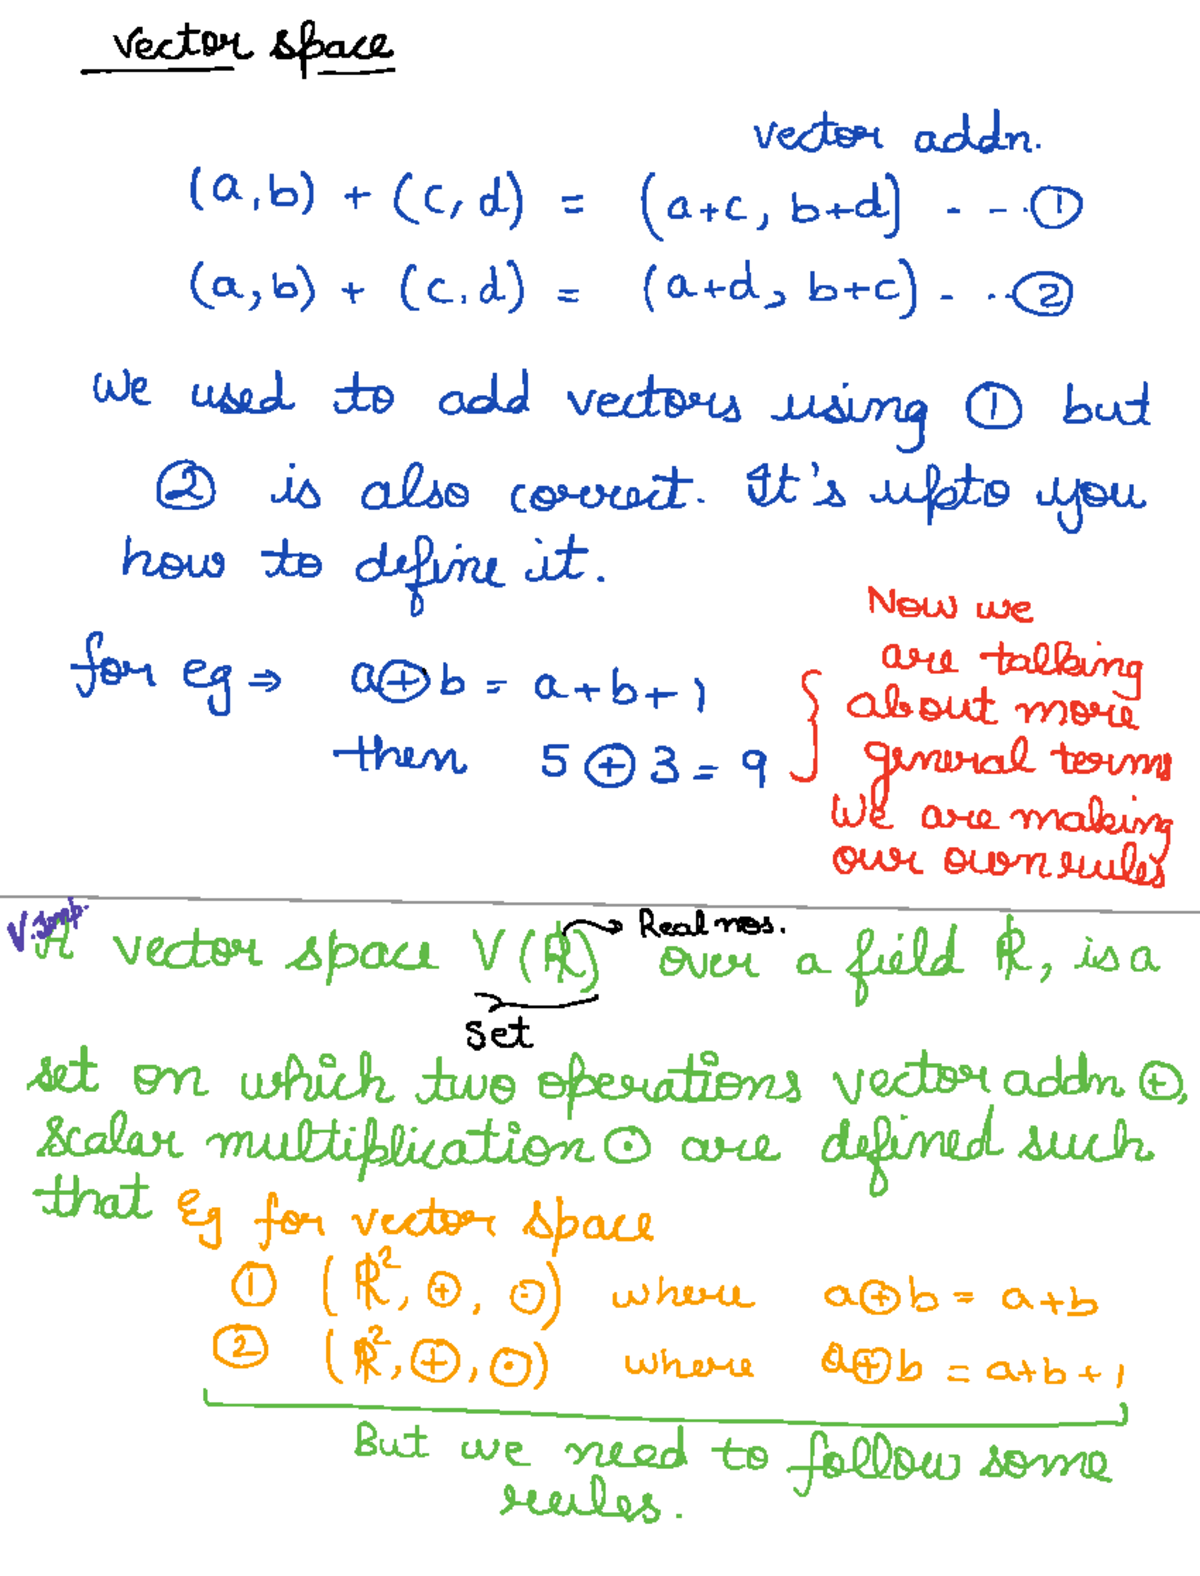 vector space
vector addn.
(a,b) + (c,d) = (a+c, b+d) - - - ①
(a,b) + (c,d) = (a+d, b+c) - - - ②
We used to add vectors using ① but
② is also correct. It's upto you
how to define it.
for eg ⇒ a⊕b = a+b+1
then 5⊕3 = 9
Now we
are talking
about more
general terms
We are making
our own rules
V.Imp.
→ Real nos.
A vector space V(ℝ) over a field ℝ, is a
set
set on which two operations vector addn ⊕,
scalar multiplication ⊙ are defined such
that
Eg for vector space
① (ℝ², ⊕, ⊙) where a⊕b = a+b
② (ℝ², ⊕, ⊙) where a⊕b = a+b+1
But we need to follow some
rules.